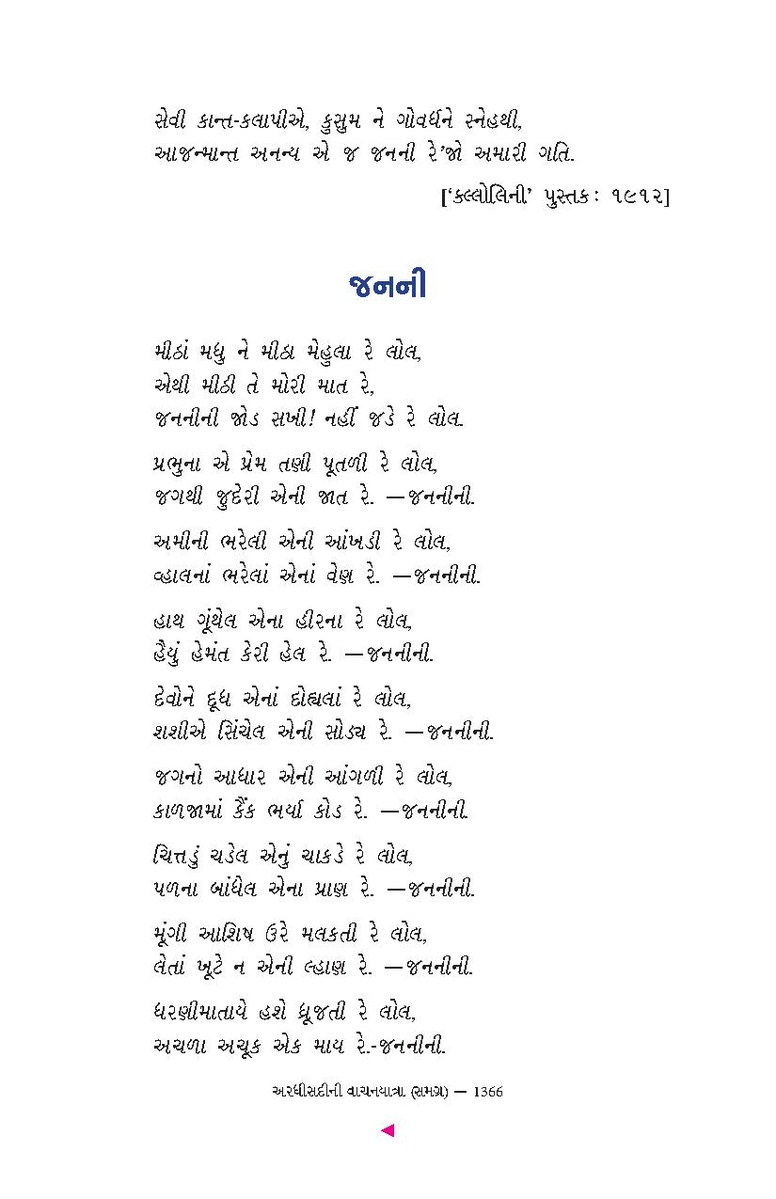 સેવી કાન્ત-કલાપીએ, કુસુમ ને ગોવર્ધને સ્નેહથી,
આજન્માન્ત અનન્ય એ જ જનની રે'જો અમારી ગતિ.
['કલ્લોલિની' પુસ્તક: ૧૯૧૨]
જનની
મીઠાં મધુ ને મીઠા મેહુલા રે લોલ,
એથી મીઠી તે મોરી માત રે,
જનનીની જોડ સખી! નહીં જડે રે લોલ.
પ્રભુના એ પ્રેમ તણી પૂતળી રે લોલ,
જગથી જુદેરી એની જાત રે. —જનનીની.
અમીની ભરેલી એની આંખડી રે લોલ,
વ્હાલનાં ભરેલાં એનાં વેણ રે. —જનનીની.
હાથ ગૂંથેલ એના હીરના રે લોલ,
હૈયું હેમંત કેરી હેલ રે. —જનનીની.
દેવોને દૂધ એનાં દોહ્યલાં રે લોલ,
શશીએ સિંચેલ એની સોડ્ય રે. —જનનીની.
જગનો આધાર એની આંગળી રે લોલ,
કાળજામાં કૈંક ભર્યા કોડ રે. —જનનીની.
ચિત્તડું ચડેલ એનું ચાકડે રે લોલ,
પળના બાંધેલ એના પ્રાણ રે. —જનનીની.
મૂંગી આશિષ ઉરે મલકતી રે લોલ,
લેતાં ખૂટે ન એની લ્હાણ રે. —જનનીની.
ધરણીમાતાયે હશે ધ્રૂજતી રે લોલ,
અચળા અચૂક એક માય રે.-જનનીની.
અરધીસદીની વાચનયાત્રા (સમગ્ર) — 1366